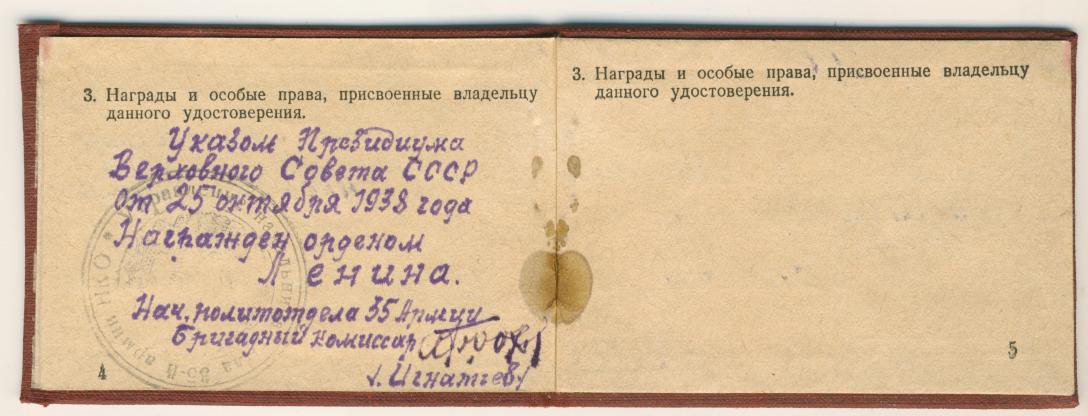 3. Награды и особые права, присвоенные владельцу
данного удостоверения.
Указом Президиума
Верховного Совета СССР
от 25 октября 1938 года
Награжден орденом
Ленина.
Нач. политотдела 35 Армии
Бригадный комиссар
/. Игнатьев/
4
3. Награды и особые права, присвоенные владельцу
данного удостоверения.
5